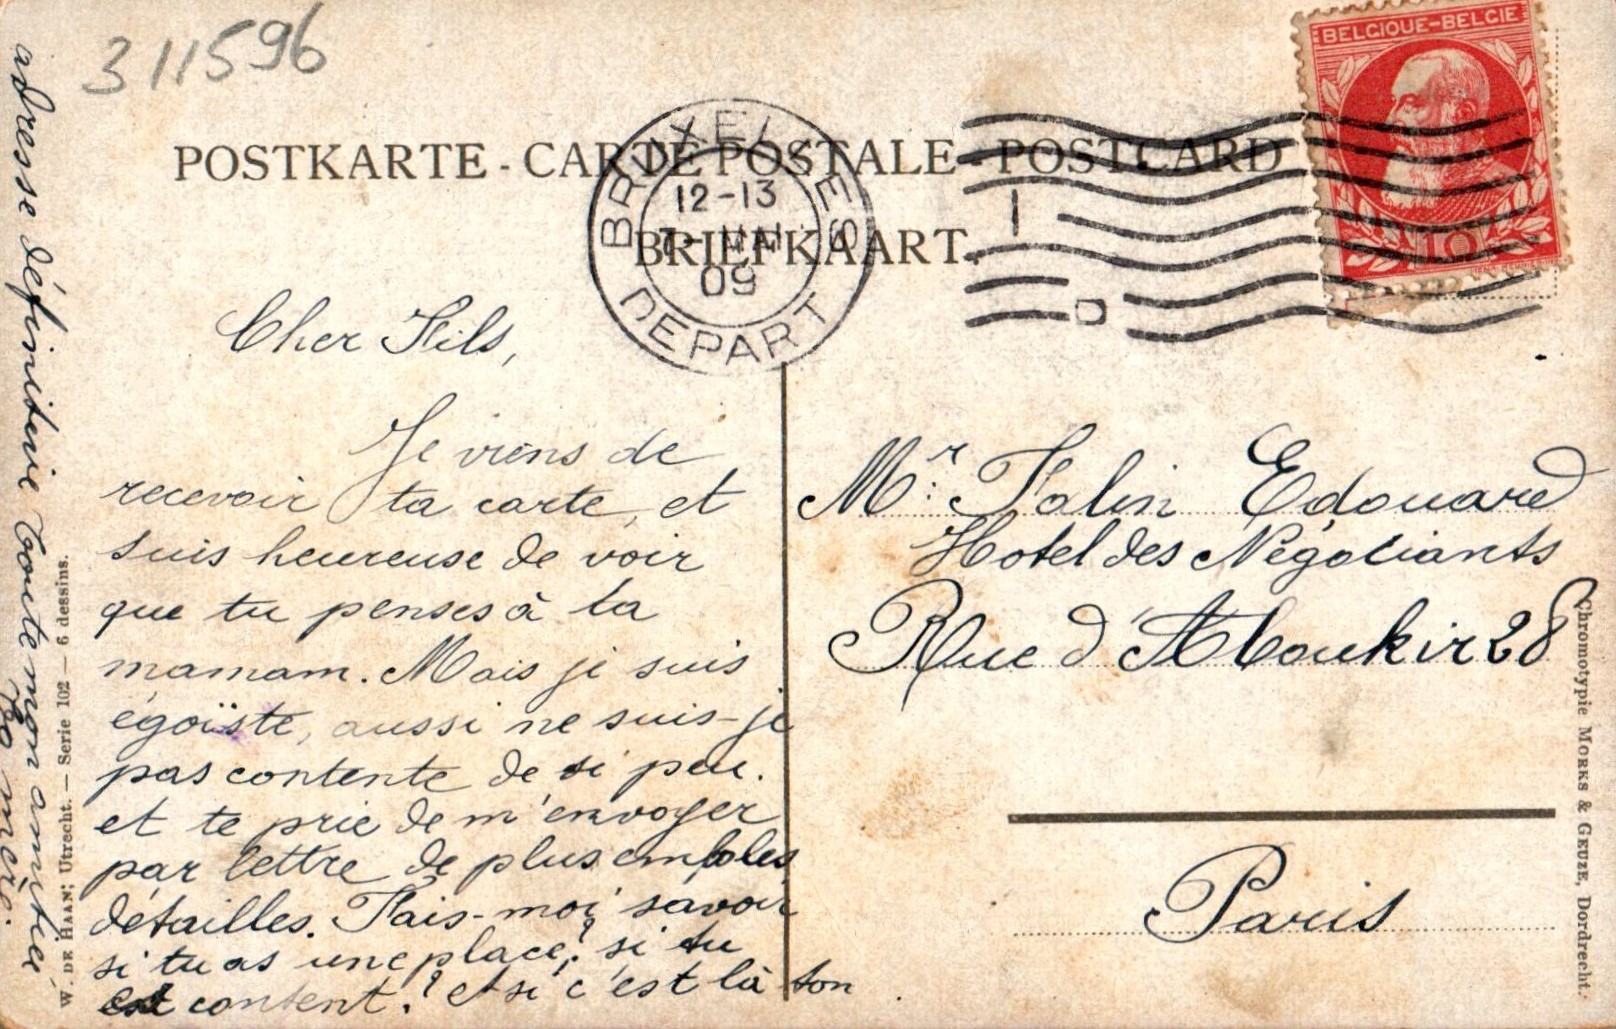 311596
BELGIQUE-BELGIE
10
POSTKARTE - CARTE POSTALE - POSTCARD
BRIEFKAART.
BRUXELLES
12-13
09
DEPART
Cher Fils,
Je viens de
recevoir ta carte, et
suis heureuse de voir
que tu penses à ta
mamam. Mais je suis
égoïste, aussi ne suis-je
pas contente de si peu.
et te prie de m'envoyer
par lettre de plus amples
détailles. Fais-moi savoir
si tu as une place? si tu
est content? et si c'est là ton
adresse définitive toute mon amitié
Ta mère.
Mr. Falin Edouard
Hotel des Négociants
Rue d'Aboukir 28
Paris
W. DE HAAN; Utrecht. — Serie 102 — 6 dessins.
Chromotypie MORKS & GEUZE, Dordrecht.